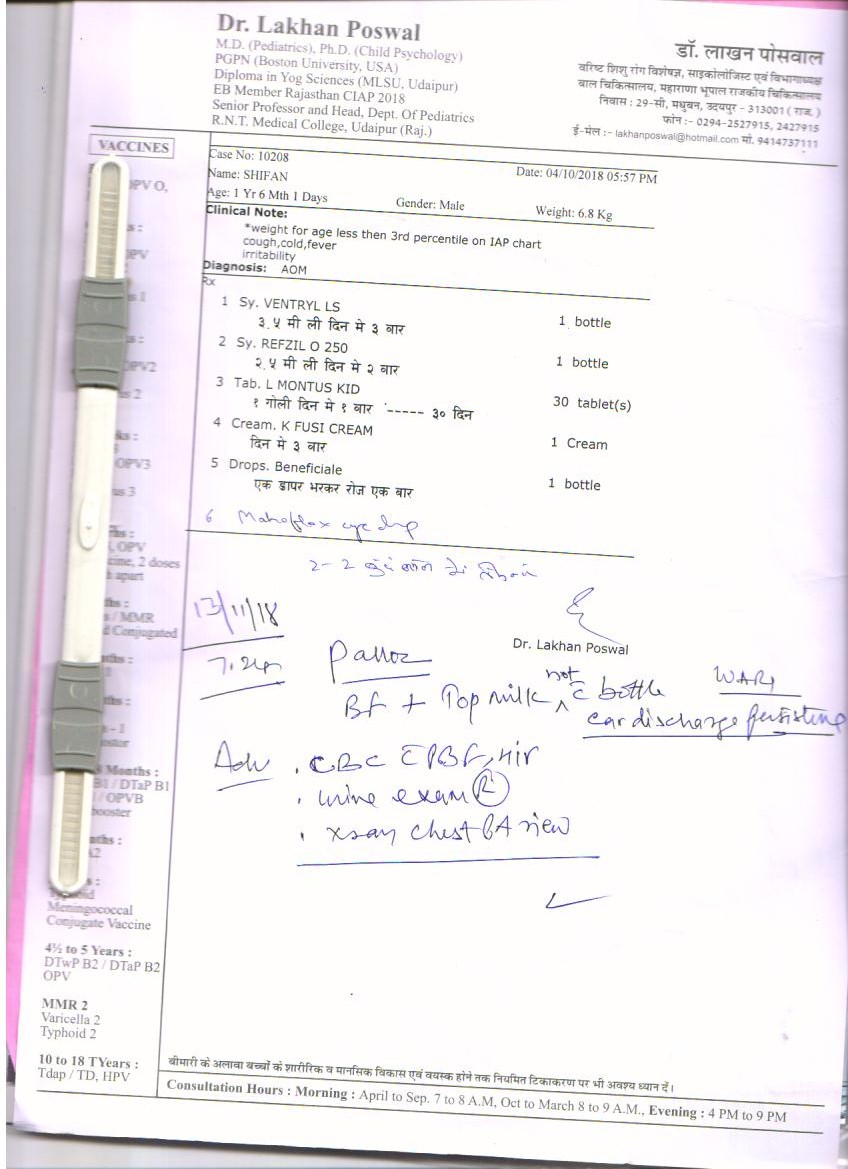 Dr. Lakhan Poswal
M.D. (Pediatrics), Ph.D. (Child Psychology)
PGPN (Boston University, USA)
Diploma in Yog Sciences (MLSU, Udaipur)
EB Member Rajasthan CIAP 2018
Senior Professor and Head, Dept. Of Pediatrics
R.N.T. Medical College, Udaipur (Raj.)
डॉ. लाखन पोसवाल
वरिष्ठ शिशु रोग विशेषज्ञ, साइकोलोजिस्ट एवं विभागाध्यक्ष
बाल चिकित्सालय, महाराणा भूपाल राजकीय चिकित्सालय
निवास : 29-सी, मधुबन, उदयपुर - 313001 ( राज. )
फोन :- 0294-2527915, 2427915
ई-मेल :- lakhanposwal@hotmail.com मो. 9414737111
VACCINES
Case No: 10208
Name: SHIFAN
Date: 04/10/2018 05:57 PM
Age: 1 Yr 6 Mth 1 Days
Gender: Male
Weight: 6.8 Kg
Clinical Note:
*weight for age less then 3rd percentile on IAP chart
cough,cold,fever
irritability
Diagnosis: AOM
Rx
1 Sy. VENTRYL LS
1 bottle
३.५ मी ली दिन मे ३ बार
2 Sy. REFZIL O 250
1 bottle
२.५ मी ली दिन मे २ बार
3 Tab. L MONTUS KID
30 tablet(s)
१ गोली दिन मे १ बार '----- ३० दिन
4 Cream. K FUSI CREAM
1 Cream
दिन मे ३ बार
5 Drops. Beneficiale
1 bottle
एक ड्रापर भरकर रोज एक बार
6 Mahoflox eye drop
2-2 बुंद कान में
13/11/18
Dr. Lakhan Poswal
Pallor
BF + Top milk not c bottle
ear discharge persisting
Adv
. CBC PBF, HIV
. Urine exam (R)
. xray chest PA view
OPV O,
OPV2
OPV3
OPV
cine, 2 doses
apart
/ MMR
d Conjugated
Months :
B1 / DTaP B1
/ OPVB
booster
Typhoid
Meningococcal
Conjugate Vaccine
4½ to 5 Years :
DTwP B2 / DTaP B2
OPV
MMR 2
Varicella 2
Typhoid 2
10 to 18 TYears :
Tdap / TD, HPV
बीमारी के अलावा बच्चों के शारीरिक व मानसिक विकास एवं वयस्क होने तक नियमित टिकाकरण पर भी अवश्य ध्यान दें।
Consultation Hours : Morning : April to Sep. 7 to 8 A.M, Oct to March 8 to 9 A.M., Evening : 4 PM to 9 PM